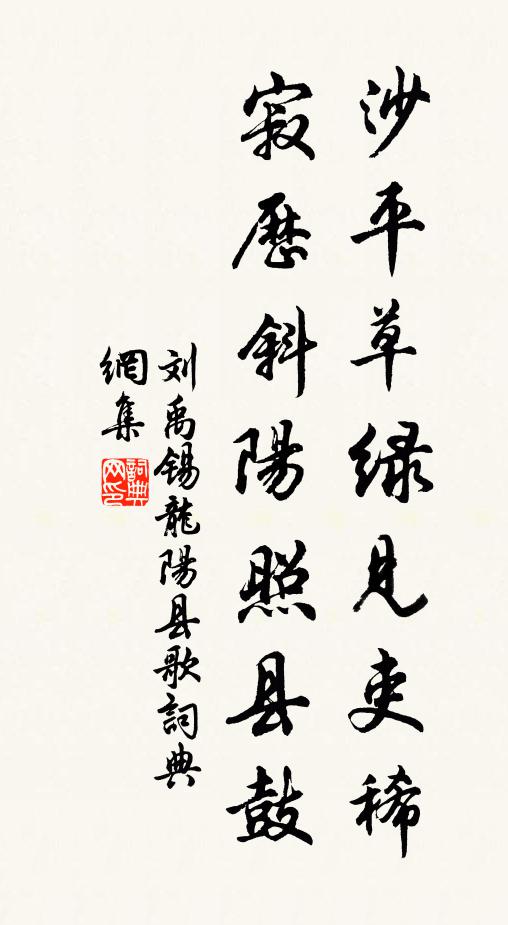 沙平草绿見吏稀
寂歷斜陽照县鼓
刘禹锡龍陽县歌詞典
網集
詞典
网印